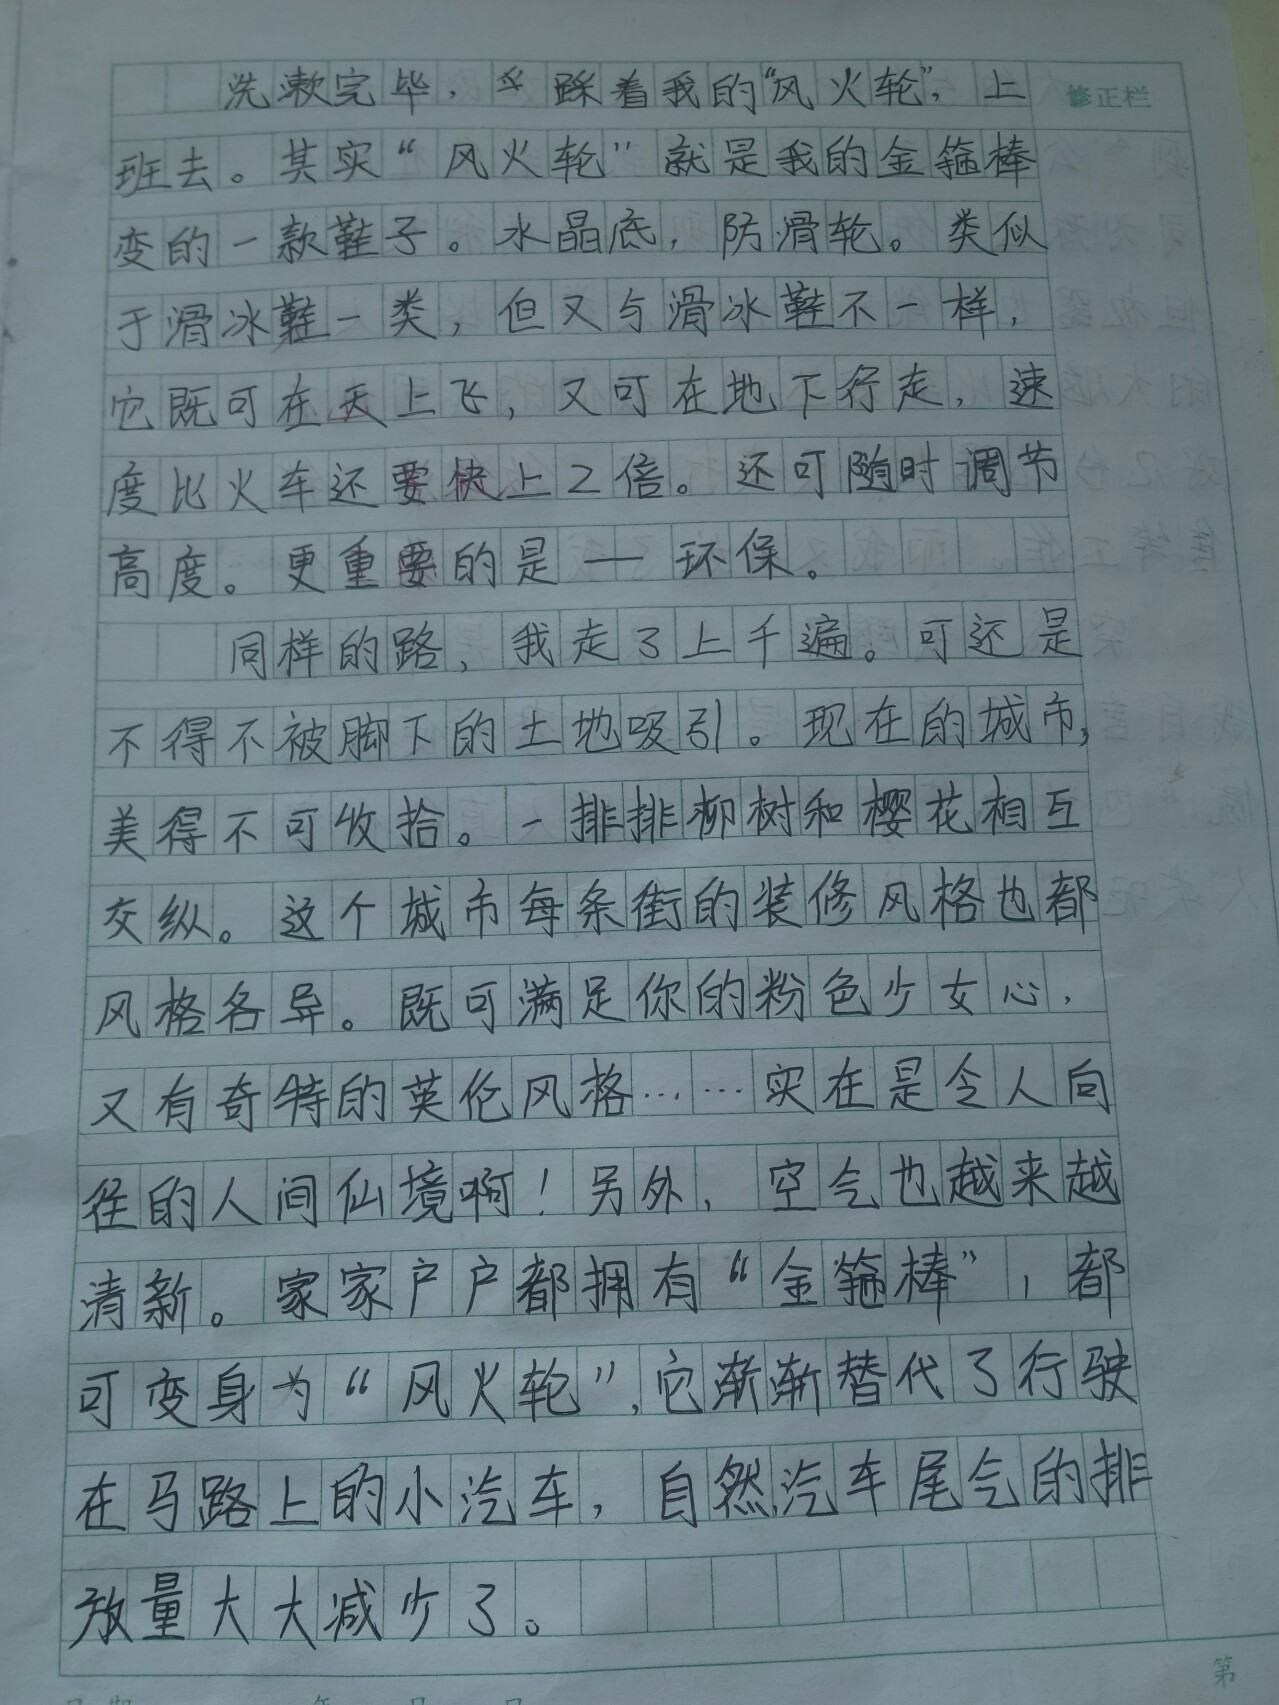 洗漱完毕，乎踩着我的“风火轮”，上
修正栏
班去。其实“风火轮”就是我的金箍棒
变的一款鞋子。水晶底，防滑轮。类似
于滑冰鞋一类，但又与滑冰鞋不一样，
它既可在天上飞，又可在地下行走，速
度比火车还要快上2倍。还可随时调节
高度。更重要的是——环保。
同样的路，我走了上千遍。可还是
不得不被脚下的土地吸引。现在的城市，
美得不可收拾。一排排柳树和樱花相互
交纵。这个城市每条街的装修风格也都
风格各异。既可满足你的粉色少女心，
又有奇特的英伦风格……实在是令人向
往的人间仙境啊！另外，空气也越来越
清新。家家户户都拥有“金箍棒”，都
可变身为“风火轮”，它渐渐替代了行驶
在马路上的小汽车，自然，汽车尾气的排
放量大大减少了。
第